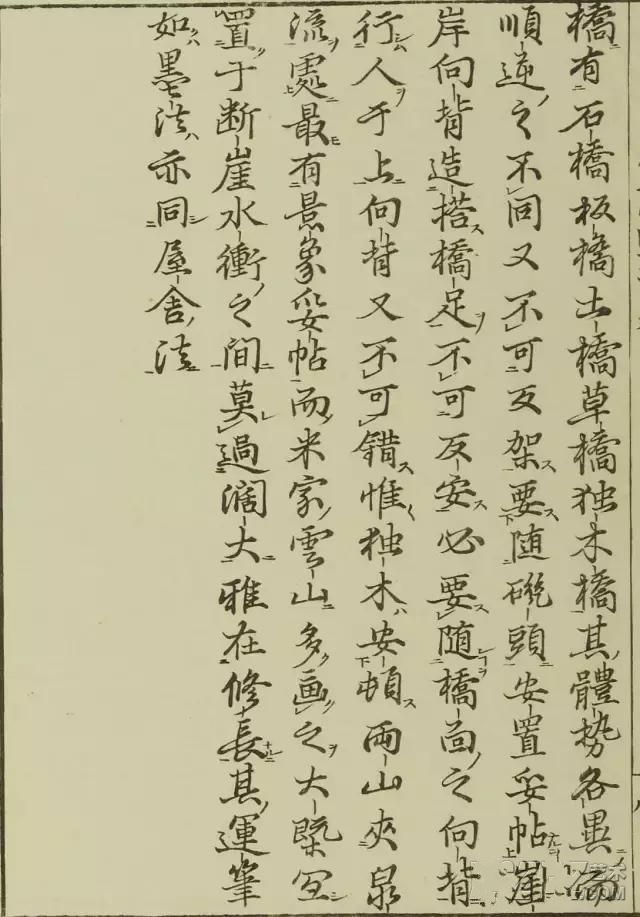 橋有石橋板橋土橋草橋独木橋其體勢各異而
順逆之不同又不可反架要随磯頭安置妥帖崖
岸向背造搭橋足不可反安必要随橋靣之向背
行人于上向背又不可錯惟独木安頓両山夾泉
流處最有景象妥帖而米家雲山多画之大槩宜
置于断崖水衝之間莫過濶大雅在修長其運筆
如墨法亦同屋舎法